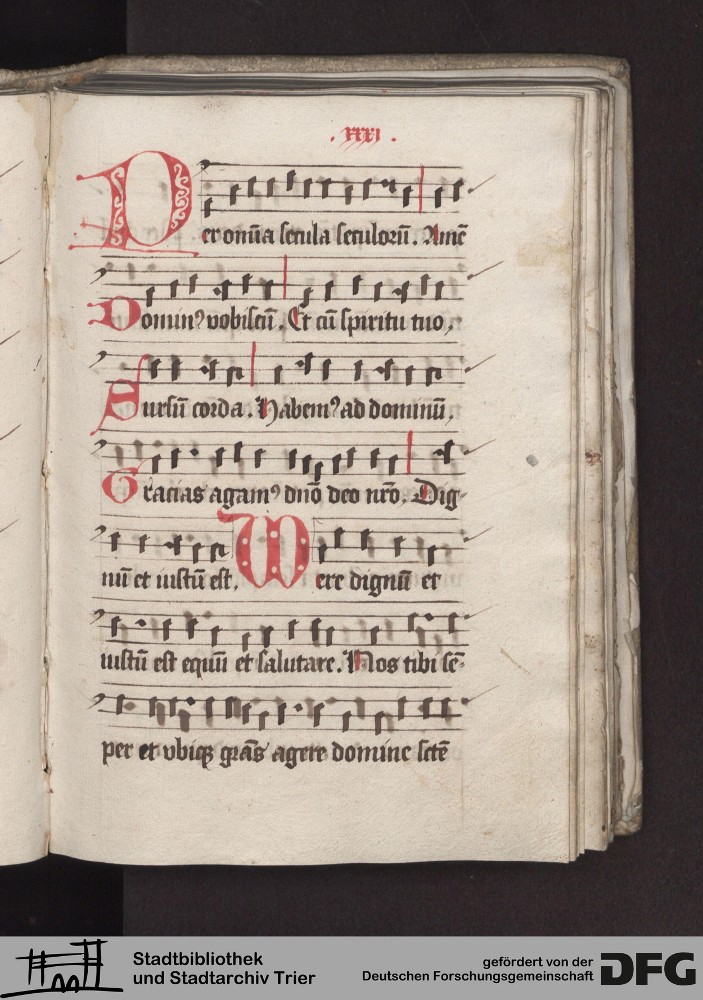 . xxxi .
Per om̄ia secula seculorū. Amē
Dominꝰ vobiscū. Et cū spiritu tuo,
Sursū corda. Habemꝰ ad dominū,
Gracias agamꝰ dn̄o deo nr̄o. Dig-
nū et iustū est, Were dignū et
iustū est equū et salutare. Nos tibi sē-
per et vbiqꝫ gr̄as agere domine sctē
Stadtbibliothek
und Stadtarchiv Trier
gefördert von der
Deutschen Forschungsgemeinschaft
DFG